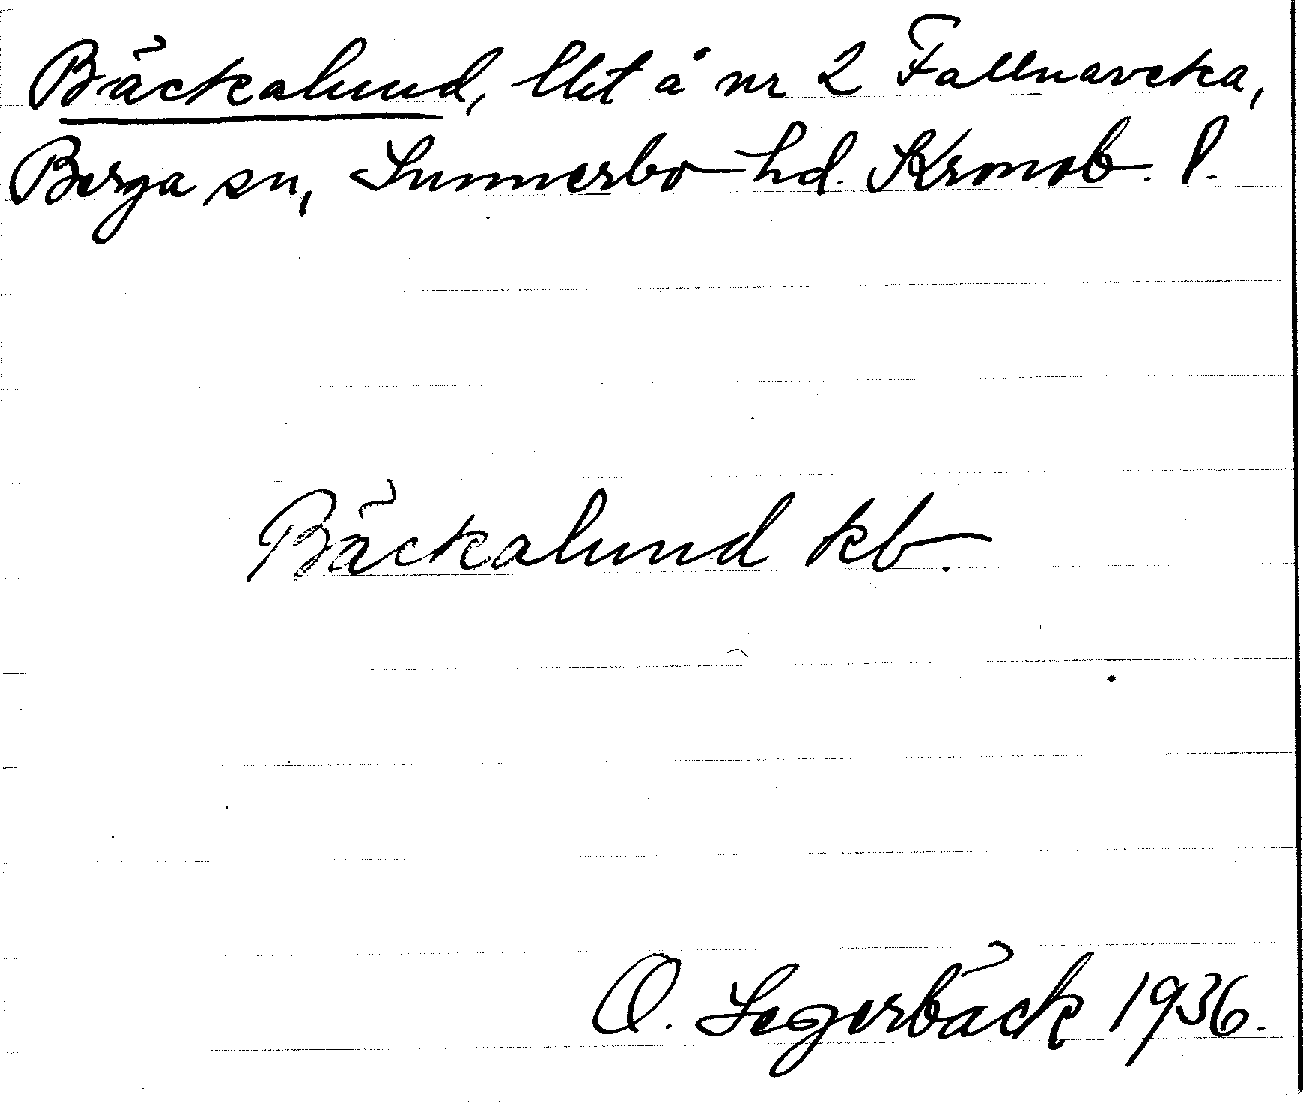 Bäckalund, lht å nr 2 Fallnaveka,
Berga sn, Sunnerbo hd. Kronob. l.
Bäckalund kb.
O. Segerbäck 1936.